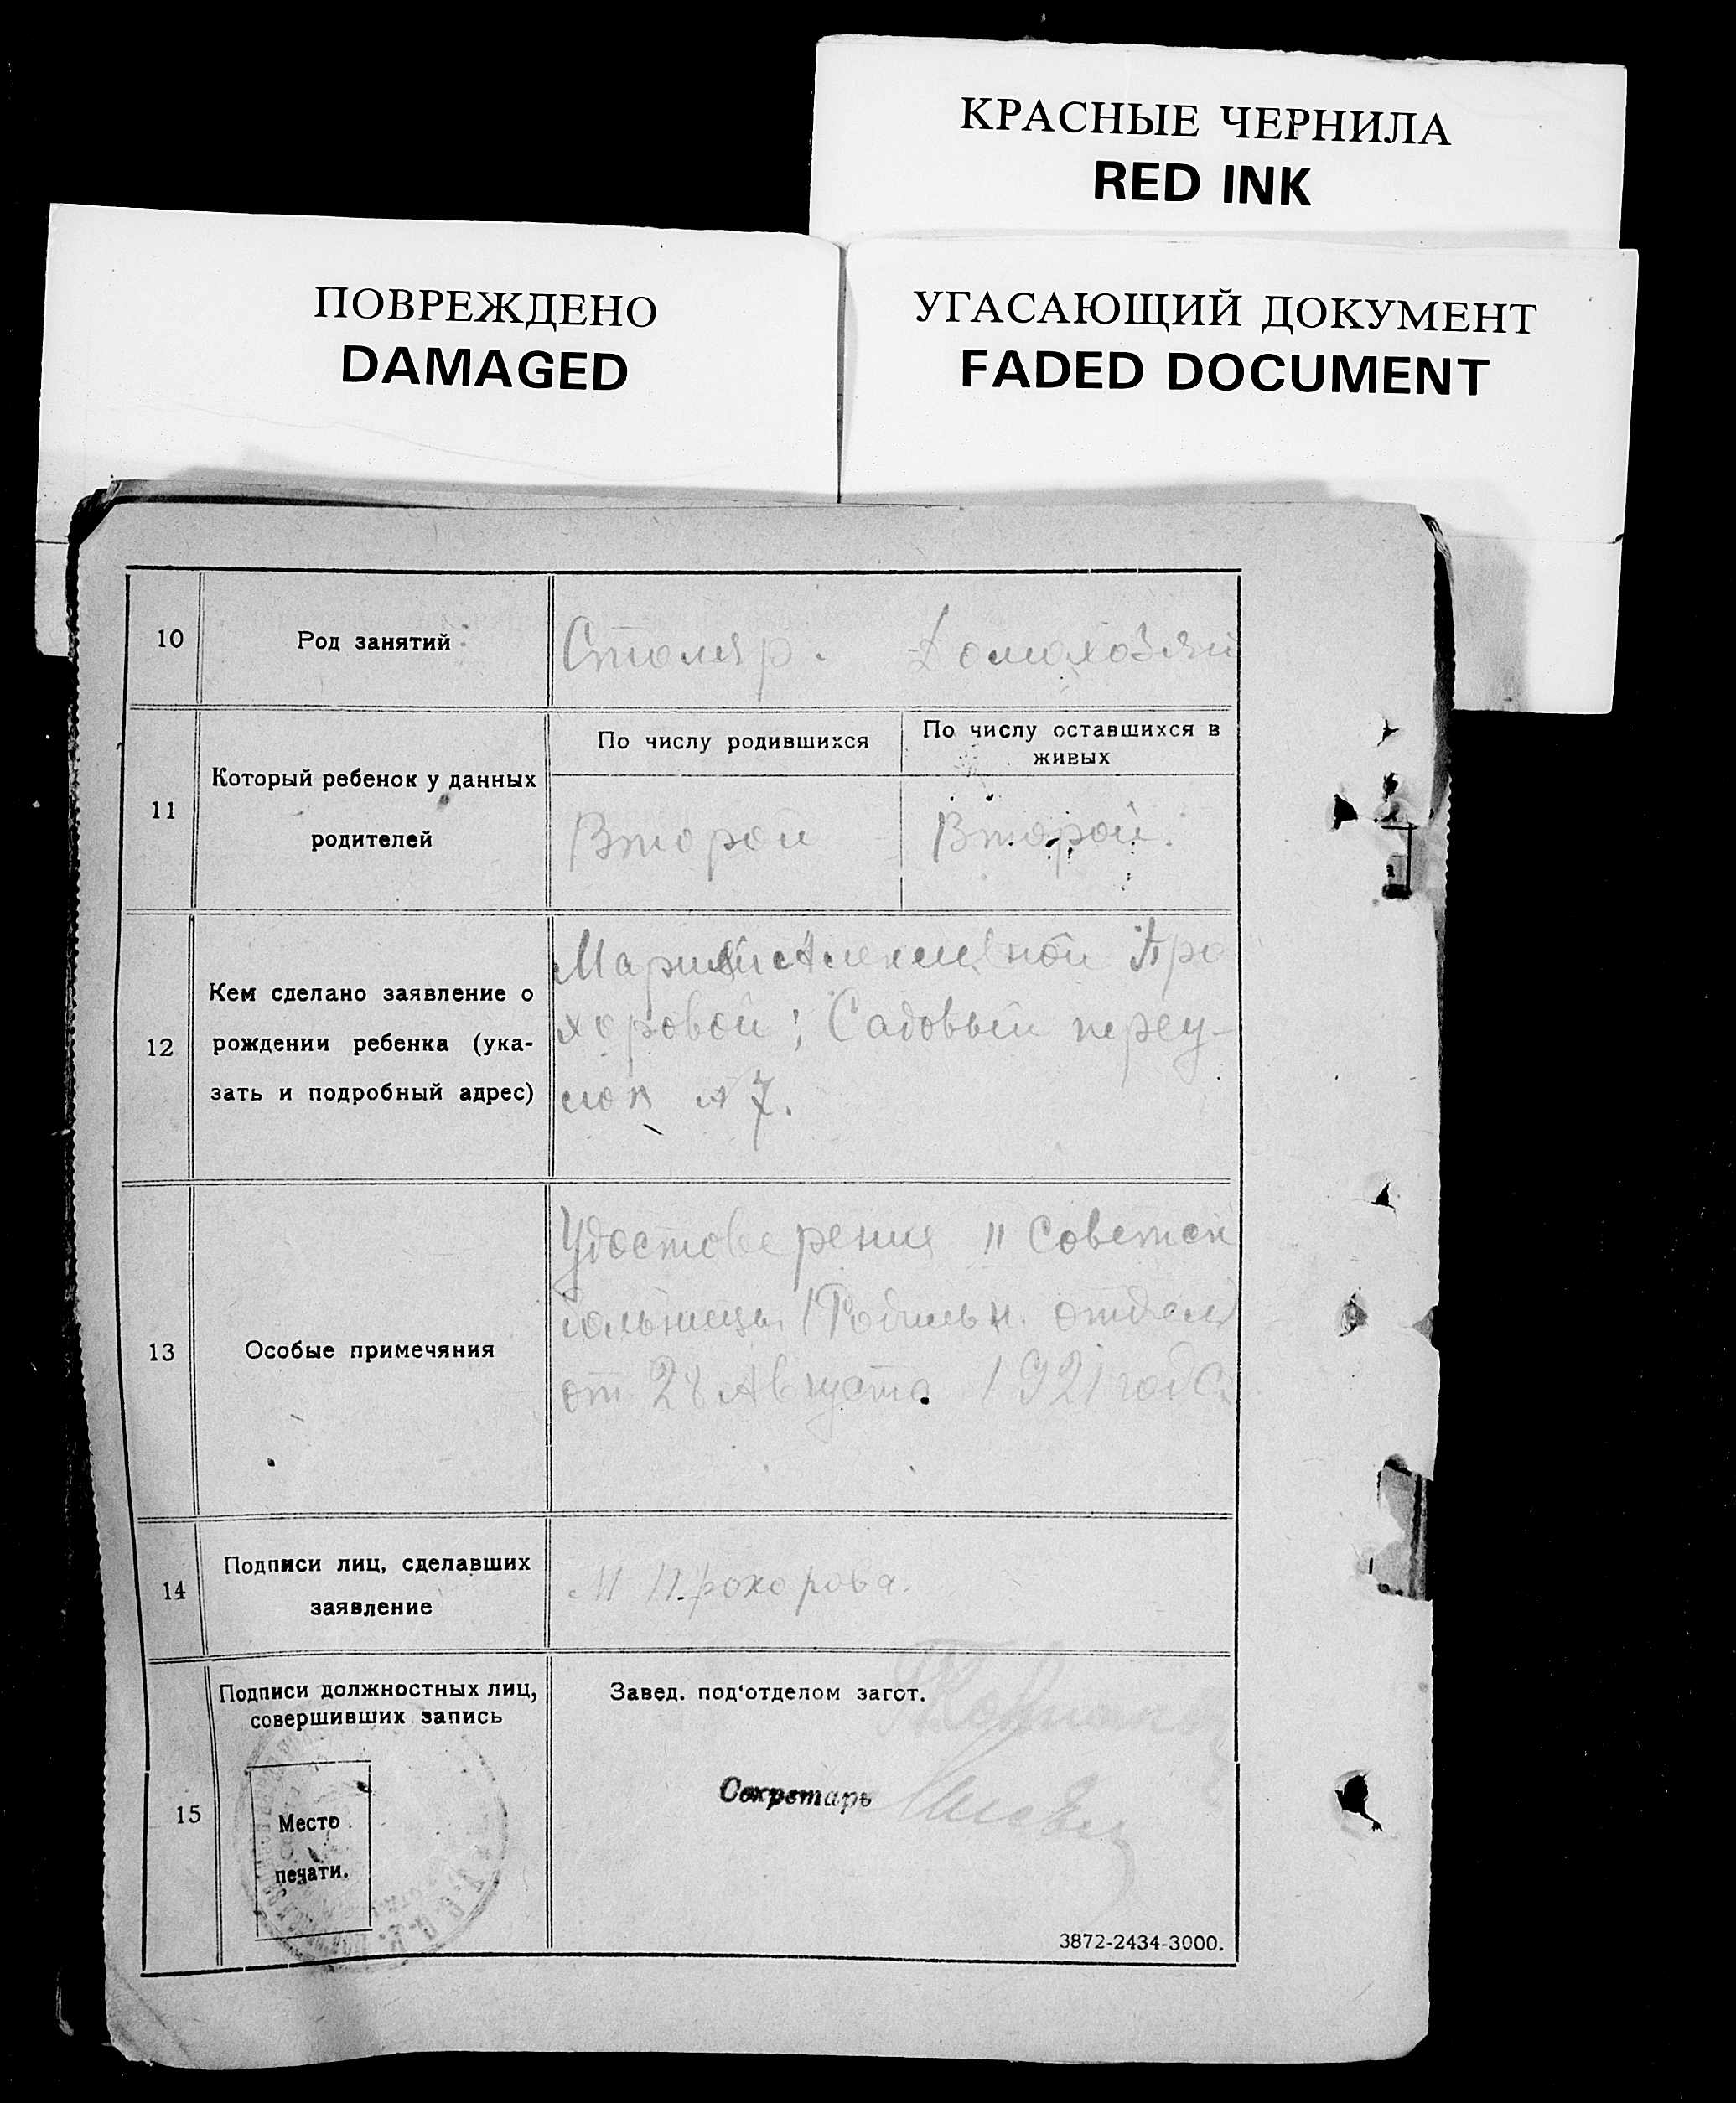 КРАСНЫЕ ЧЕРНИЛА
RED INK
ПОВРЕЖДЕНО
DAMAGED
УГАСАЮЩИЙ ДОКУМЕНТ
FADED DOCUMENT
10 Род занятий Столяр. Домохозяй
По числу родившихся
По числу оставшихся в
живых
11 Который ребенок у данных
родителей
Второй Второй.
Кем сделано заявление о
12 рождении ребенка (ука-
зать и подробный адрес)
Марией Алексеевной Про
хоровой; Садовый переу-
лок № 7.
13 Особые примечяния
Удостоверения II Советск
больницы (Родильн. отдел
от 28 Августа 1921 года
14 Подписи лиц, сделавших
заявление
М Прохорова.
Подписи должностных лиц,
совершивших запись
15 Место
печати.
Завед. под'отделом загот.
Секретарь
3872-2434-3000.